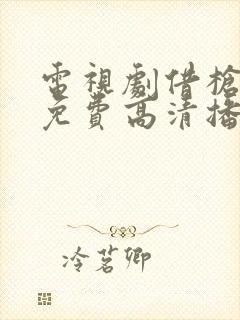 電視劇借槍
免費高清播
冷茗卿